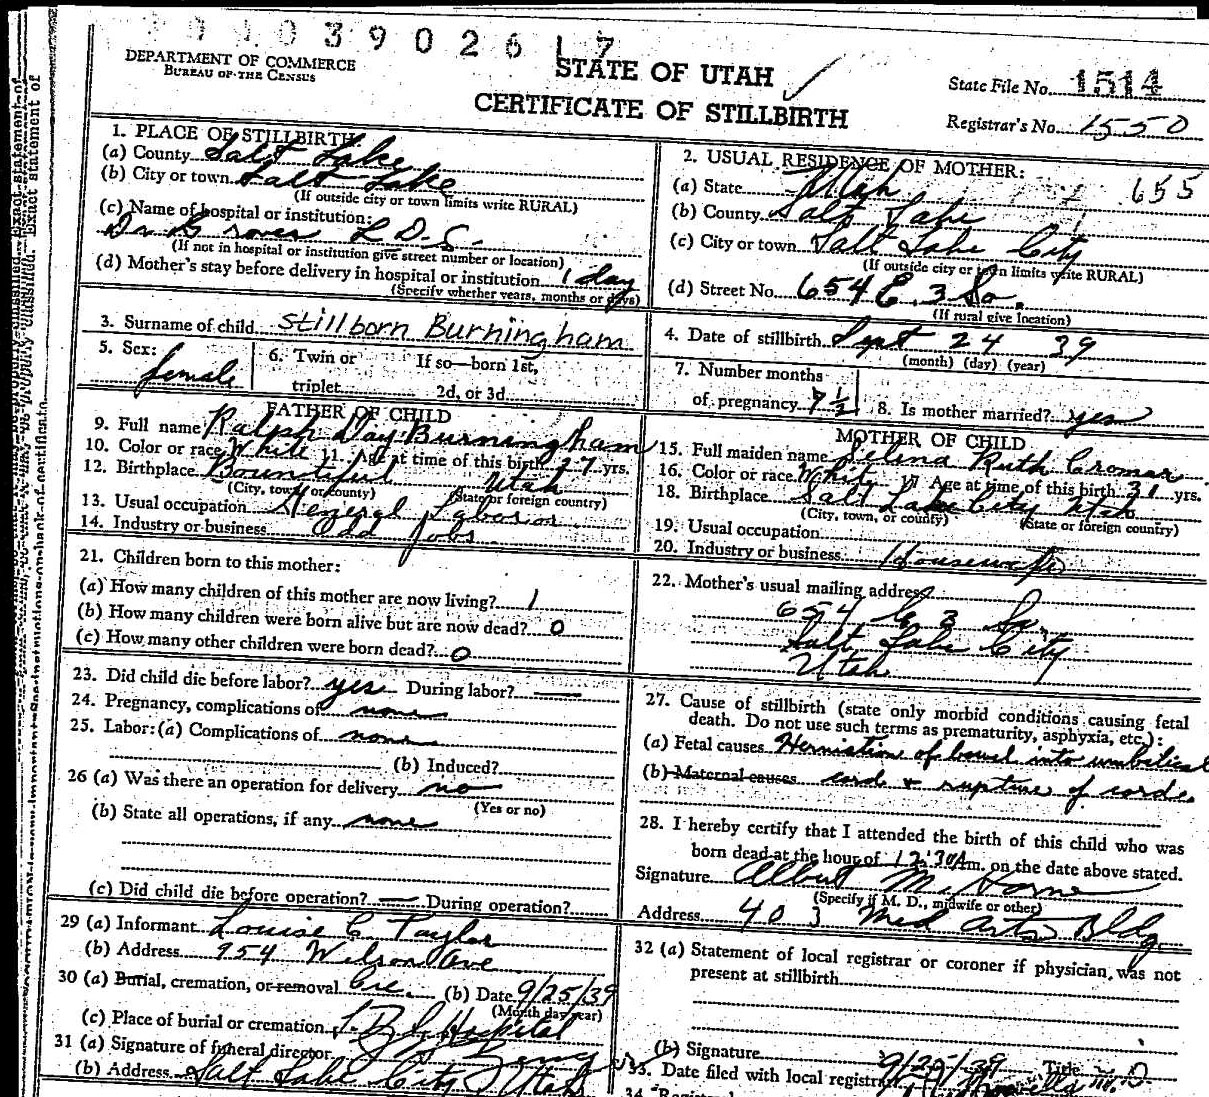 0 3 9 0 2 6 1 7
DEPARTMENT OF COMMERCE
BUREAU OF THE CENSUS
STATE OF UTAH
CERTIFICATE OF STILLBIRTH
State File No. 1514
Registrar's No. 1550
1. PLACE OF STILLBIRTH:
(a) County Salt Lake
(b) City or town Salt Lake
(If outside city or town limits write RURAL)
(c) Name of hospital or institution:
Dr. Groves L.D.S.
(If not in hospital or institution give street number or location)
(d) Mother's stay before delivery in hospital or institution 1 day
(Specify whether years, months or days)
2. USUAL RESIDENCE OF MOTHER:
(a) State Utah 655
(b) County Salt Lake
(c) City or town Salt Lake City
(If outside city or town limits write RURAL)
(d) Street No. 654 E. 3 So.
(If rural give location)
3. Surname of child stillborn Burningham
4. Date of stillbirth Sept 24 39
(month) (day) (year)
5. Sex: female
6. Twin or triplet If so—born 1st, 2d, or 3d
7. Number months of pregnancy 7 ½
8. Is mother married? yes
FATHER OF CHILD
9. Full name Ralph Day Burningham
10. Color or race White 11. Age at time of this birth 27 yrs.
12. Birthplace Bountiful Utah
(City, town, or county) (State or foreign country)
13. Usual occupation General Labor
14. Industry or business Odd Jobs
MOTHER OF CHILD
15. Full maiden name Selena Ruth Cromar
16. Color or race White 17 Age at time of this birth 31 yrs.
18. Birthplace Salt Lake City Utah
(City, town, or county) (State or foreign country)
19. Usual occupation
20. Industry or business Housewife
21. Children born to this mother:
(a) How many children of this mother are now living? 1
(b) How many children were born alive but are now dead? 0
(c) How many other children were born dead? 0
22. Mother's usual mailing address?
654 E 3 So.
Salt Lake City
Utah
23. Did child die before labor? yes During labor?
24. Pregnancy, complications of none
25. Labor: (a) Complications of none
(b) Induced?
26 (a) Was there an operation for delivery no
(Yes or no)
(b) State all operations, if any none
(c) Did child die before operation? — During operation?
27. Cause of stillbirth (state only morbid conditions causing fetal
death. Do not use such terms as prematurity, asphyxia, etc.):
(a) Fetal causes Herniation of bowel into umbilical
(b) Maternal causes cord & rupture of cord.
28. I hereby certify that I attended the birth of this child who was
born dead at the hour of 12:30 A m. on the date above stated.
Signature Albert M. Horne
(Specify if M. D., midwife or other)
Address 403 Med Arts Bldg
29 (a) Informant Louise C Taylor
(b) Address 954 Wilson Ave
30 (a) Burial, cremation, or removal Cre. (b) Date 9/25/39
(Month day year)
(c) Place of burial or cremation Hospital
31 (a) Signature of funeral director
(b) Address Salt Lake City Utah
32 (a) Statement of local registrar or coroner if physician was not
present at stillbirth
(b) Signature Title M. D.
33. Date filed with local registrar 9/25/39